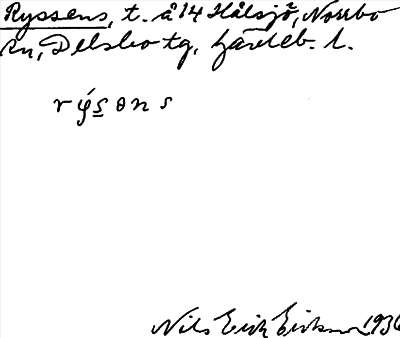 Ryssens, t. å 14 Hålsjö, Norrbo
sn, Delsbo tg, Gävleb. l.
rýs̲ɵns
Nils Erik Eriksson 1936